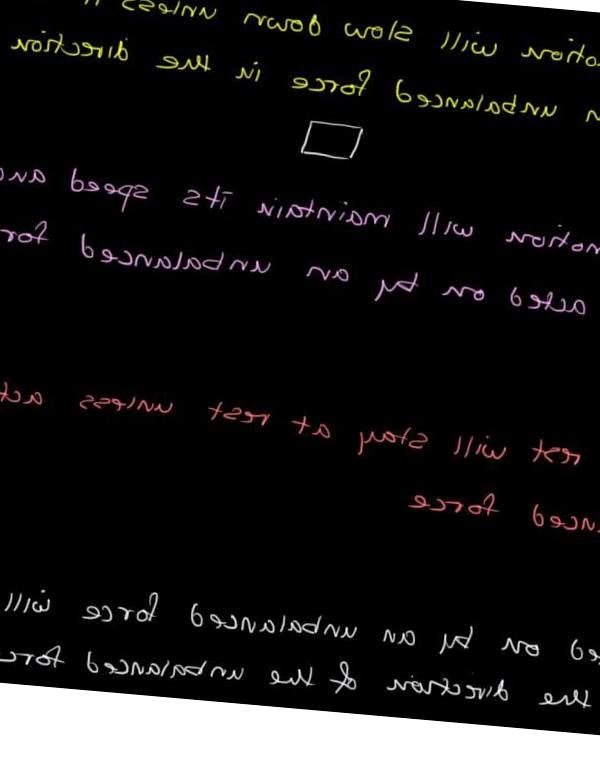 otion will slow down unless i
n unbalanced force in the direction
motion will maintain its speed and
acted on by an unbalanced for
rest will stay at rest unless act
nced force
ed on by an unbalanced force will
the direction of the unbalanced forc